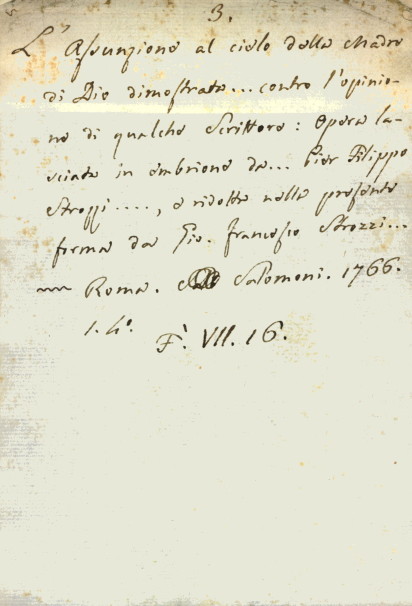 3.
L'Assunzione al cielo della Madre
di Dio dimostrata... contro l'opinio-
ne di qualche Scrittore: Opera la-
sciata in embrione da... Pier Filippo
Strozzi...., e ridotta nella presente
forma da Gio. Francesco Strozzi...
Roma. Salomoni. 1766.
1. 4º.
F. VII. 16.